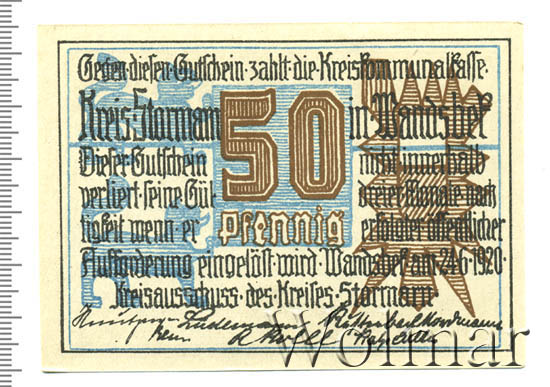 Gegen diesen Gutschein zahlt die Kreiskommunalkasse
Kreis Stormarn 50 in Wandsbek
Dieser Gutschein nicht innerhalb
verliert seine Gül- dreier Monate nach
tigkeit wenn er Pfennig erfolgter öffentlicher
Aufforderung eingelöst wird Wandsbek am 24.6.1920
Kreisausschuss des Kreises Stormarn
Wolmar